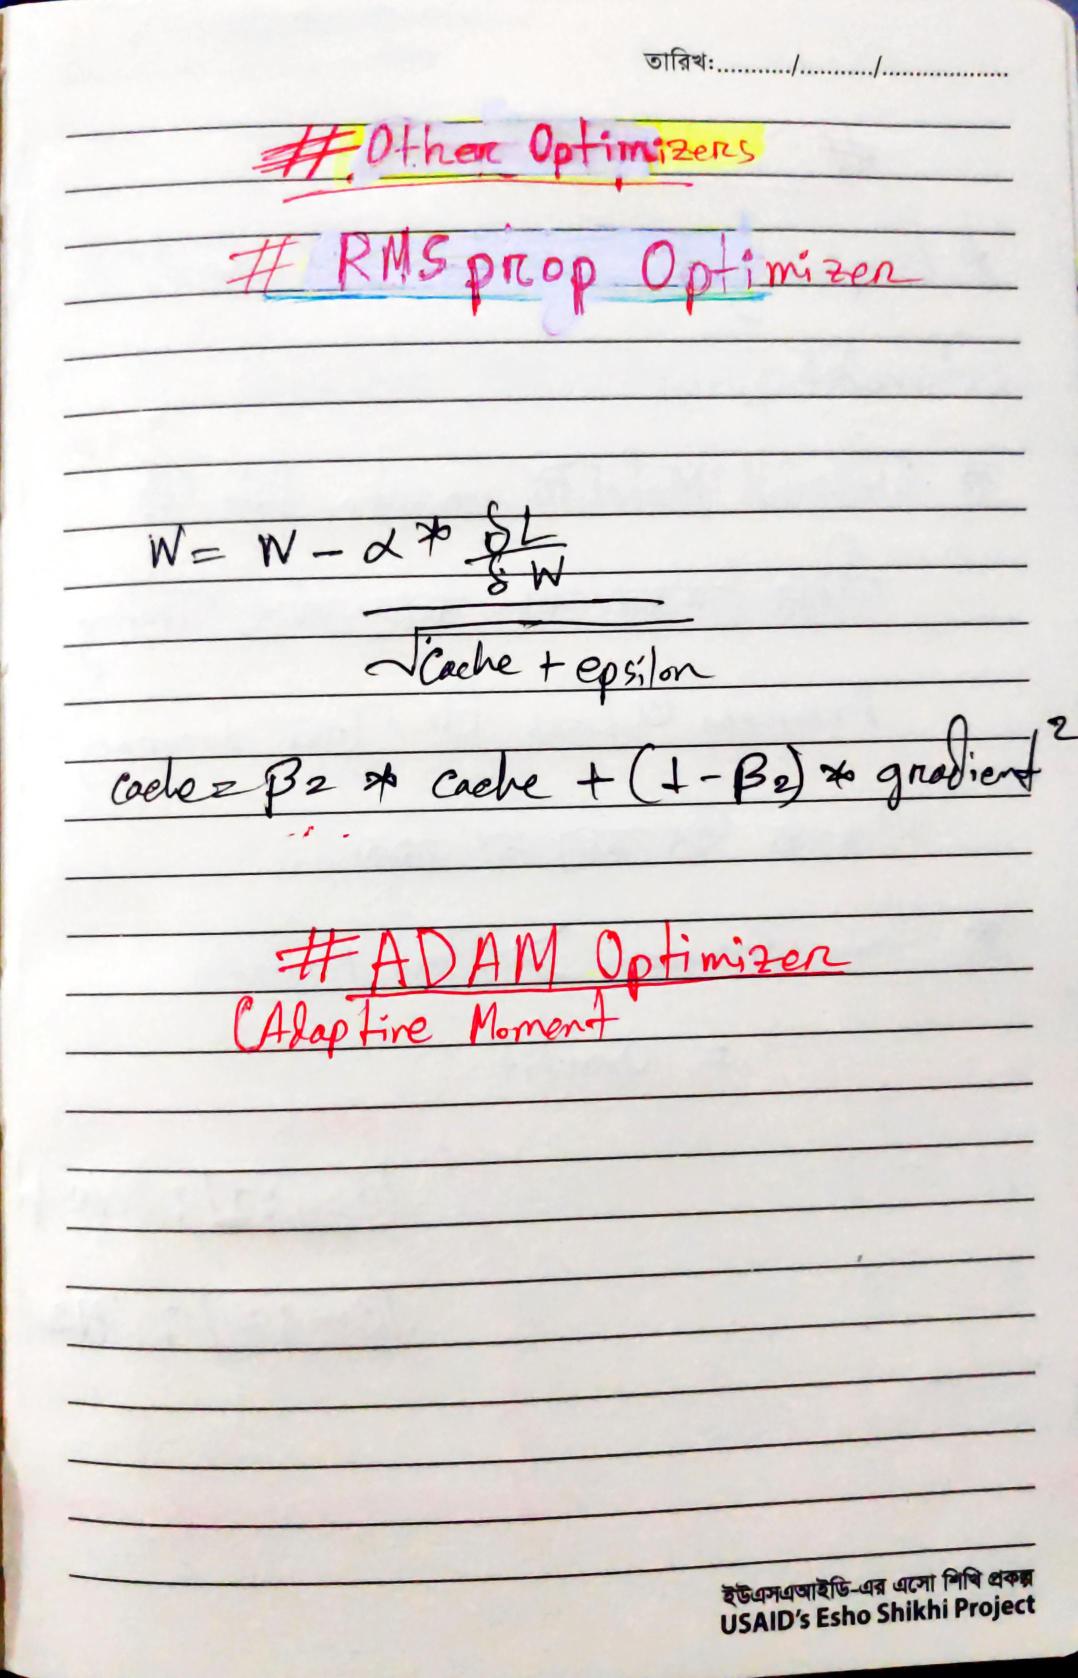 তারিখ:............/............/....................
# Other Optimizers
# RMS prop Optimizer
W = W - α * δL
δW
√cache + epsilon
cache = β2 * cache + (1 - β2) * gradient²
# ADAM Optimizer
(Adaptive Moment
ইউএসএআইডি-এর এসো শিখি প্রকল্প
USAID's Esho Shikhi Project